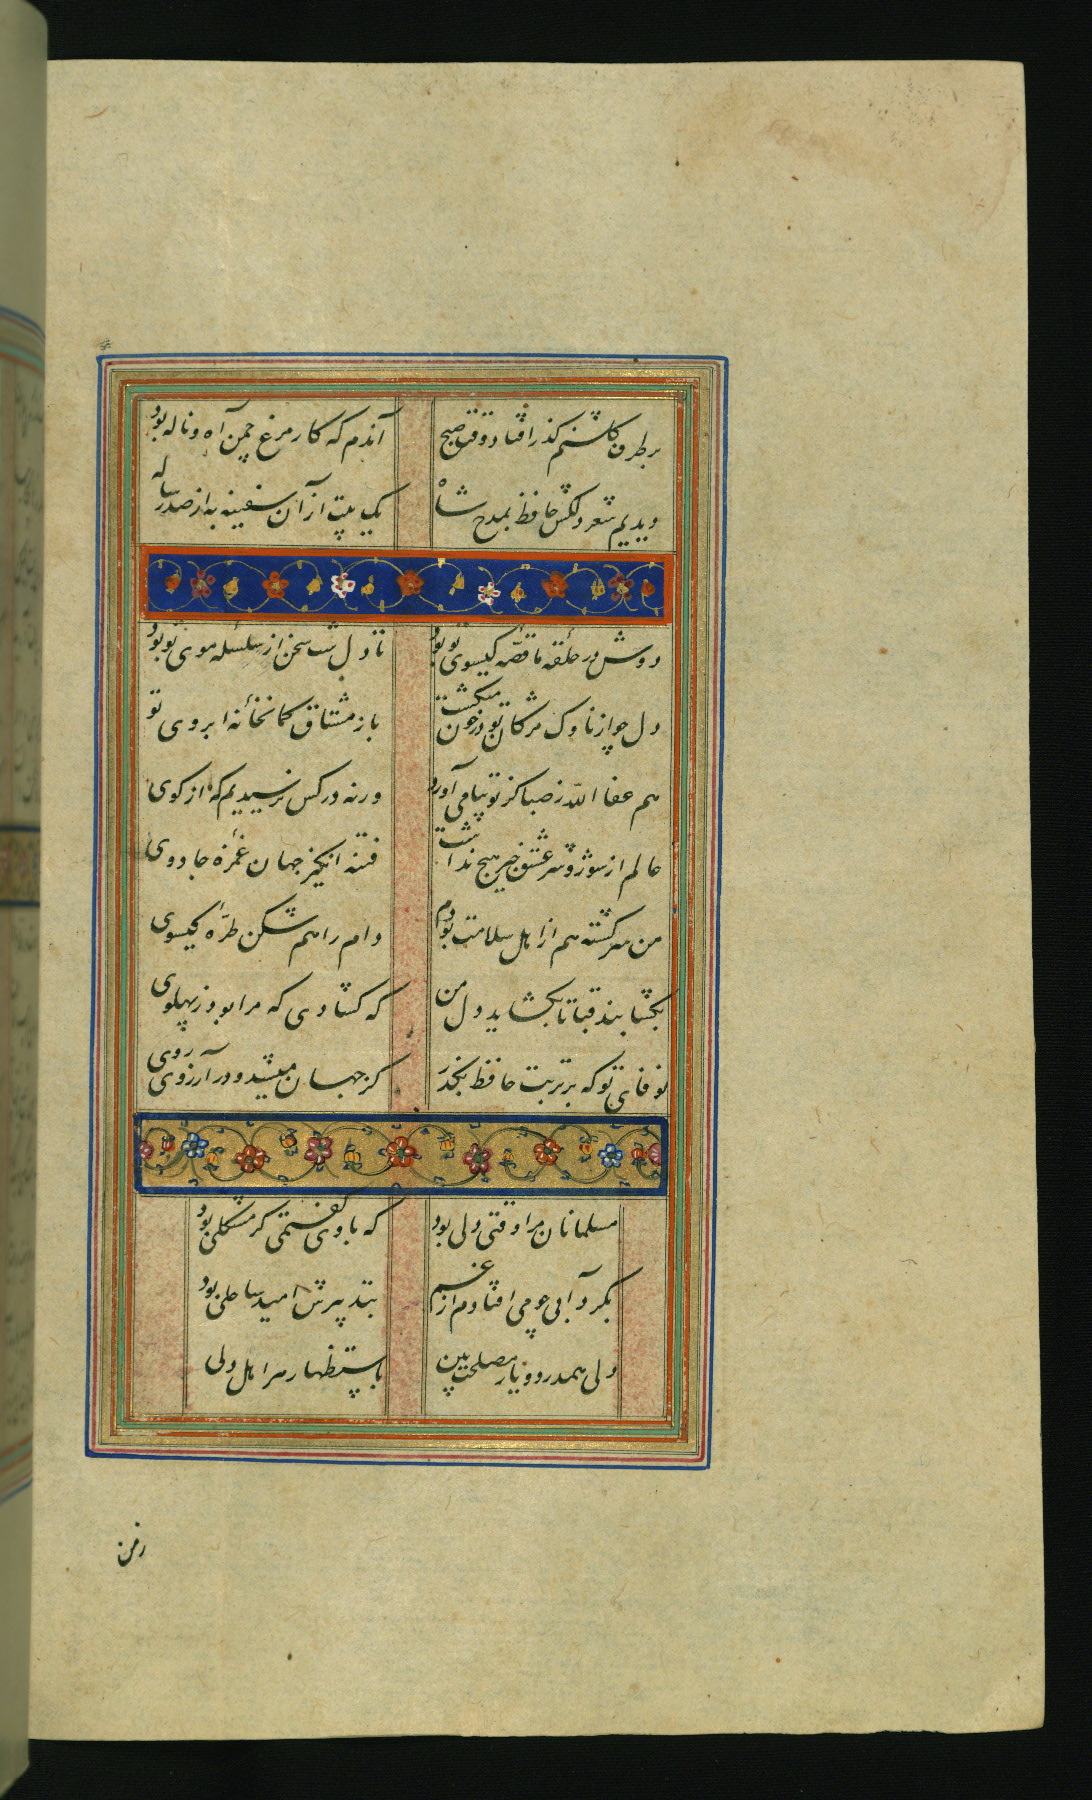 بر طرف گلشنم گذر افتاد وقت صبح آندم که کار مرغ چمن آه و ناله بود
دیدیم شعر دلکش حافظ بمدح شاه یک بیت از آن سفینه به از صد رساله
دوش در حلقه ما قصه گیسوی تو بود تا دل شب سخن از سلسله موی تو بود
دل چو از ناوک مژگان تو در خون میگشت باز مشتاق کمانخانه ابروی تو
هم عفا الله ز صبا کز تو پیامی آورد ورنه در کس نرسیدیم که از کوی
عالم از سوز و شر عشق خبر هیچ نداشت فتنه انگیز جهان غمزه جادوی
من سرگشته هم از اهل سلامت بودم دام راهم شکن طره گیسوی
بگشا بند قبا تا بگشاید دل من که گشادی که مرا بود ز پهلوی
بوفای تو که بر تربت حافظ بگذر کز جهان میشد و در آرزوی روی
مسلمانان مرا وقتی دلی بود که با وی گفتمی گر مشکلی بود
بگردابی چو می افتادم از غم بتدبیرش امید ساحلی بود
دلی همدرد و یار مصلحت بین باستظهار هر اهل دلی
ز من